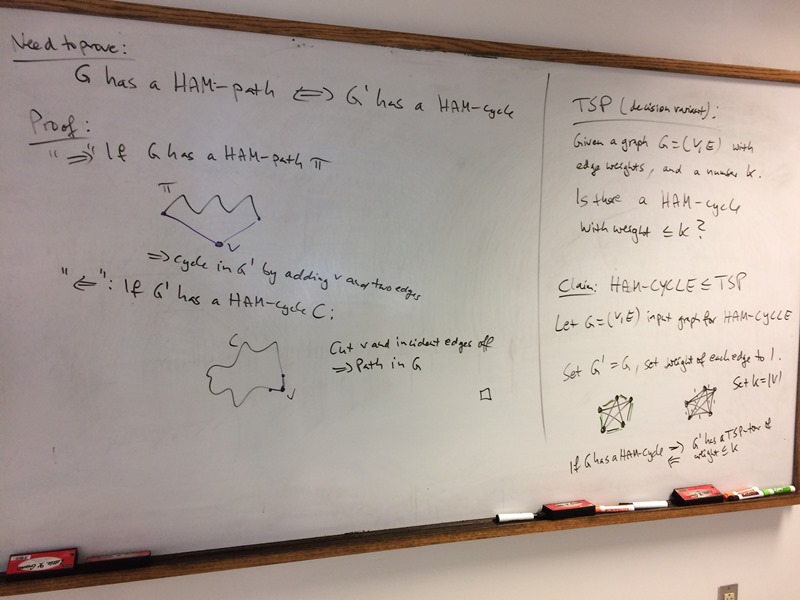 Need to prove:
G has a HAM-path ⟺ G' has a HAM-cycle
Proof:
"⟹" If G has a HAM-path π
π
v
⟹ cycle in G' by adding v and two edges
"⟸": If G' has a HAM-cycle C:
C
v
Cut v and incident edges off
⟹ Path in G
□
TSP (decision variant):
Given a graph G=(V,E) with
edge weights, and a number k.
Is there a HAM-cycle
with weight ≤ k?
Claim: HAM-CYCLE ≤ TSP
Let G=(V,E) input graph for HAM-CYCLE
Set G'=G, set weight of each edge to 1.
Set k=|V|
If G has a HAM-cycle ⟹ G' has a TSP-tour of
⟸ weight ≤ k